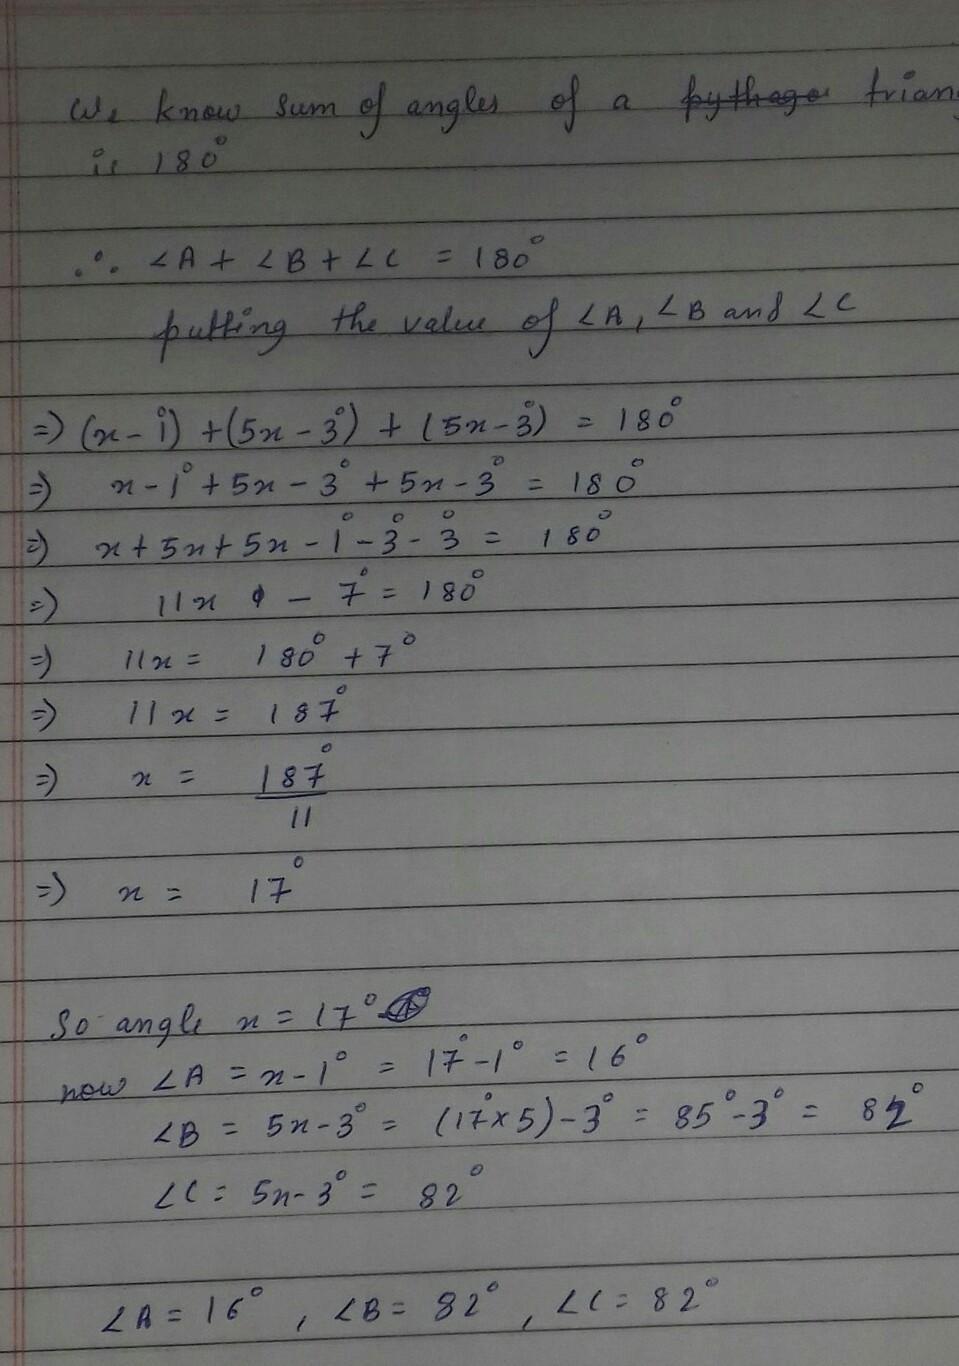 We know sum of angles of a pythago triang
is 180°
∴ ∠A + ∠B + ∠C = 180°
putting the value of ∠A, ∠B and ∠C
⇒ (x - 1°) + (5x - 3°) + (5x - 3°) = 180°
⇒ x - 1° + 5x - 3° + 5x - 3° = 180°
⇒ x + 5x + 5x - 1° - 3° - 3° = 180°
⇒ 11x - 7° = 180°
⇒ 11x = 180° + 7°
⇒ 11x = 187°
⇒ x = 187°
11
⇒ x = 17°
So angle x = 17°
now ∠A = x - 1° = 17° - 1° = 16°
∠B = 5x - 3° = (17° × 5) - 3° = 85° - 3° = 82°
∠C = 5x - 3° = 82°
∠A = 16° , ∠B = 82° , ∠C = 82°